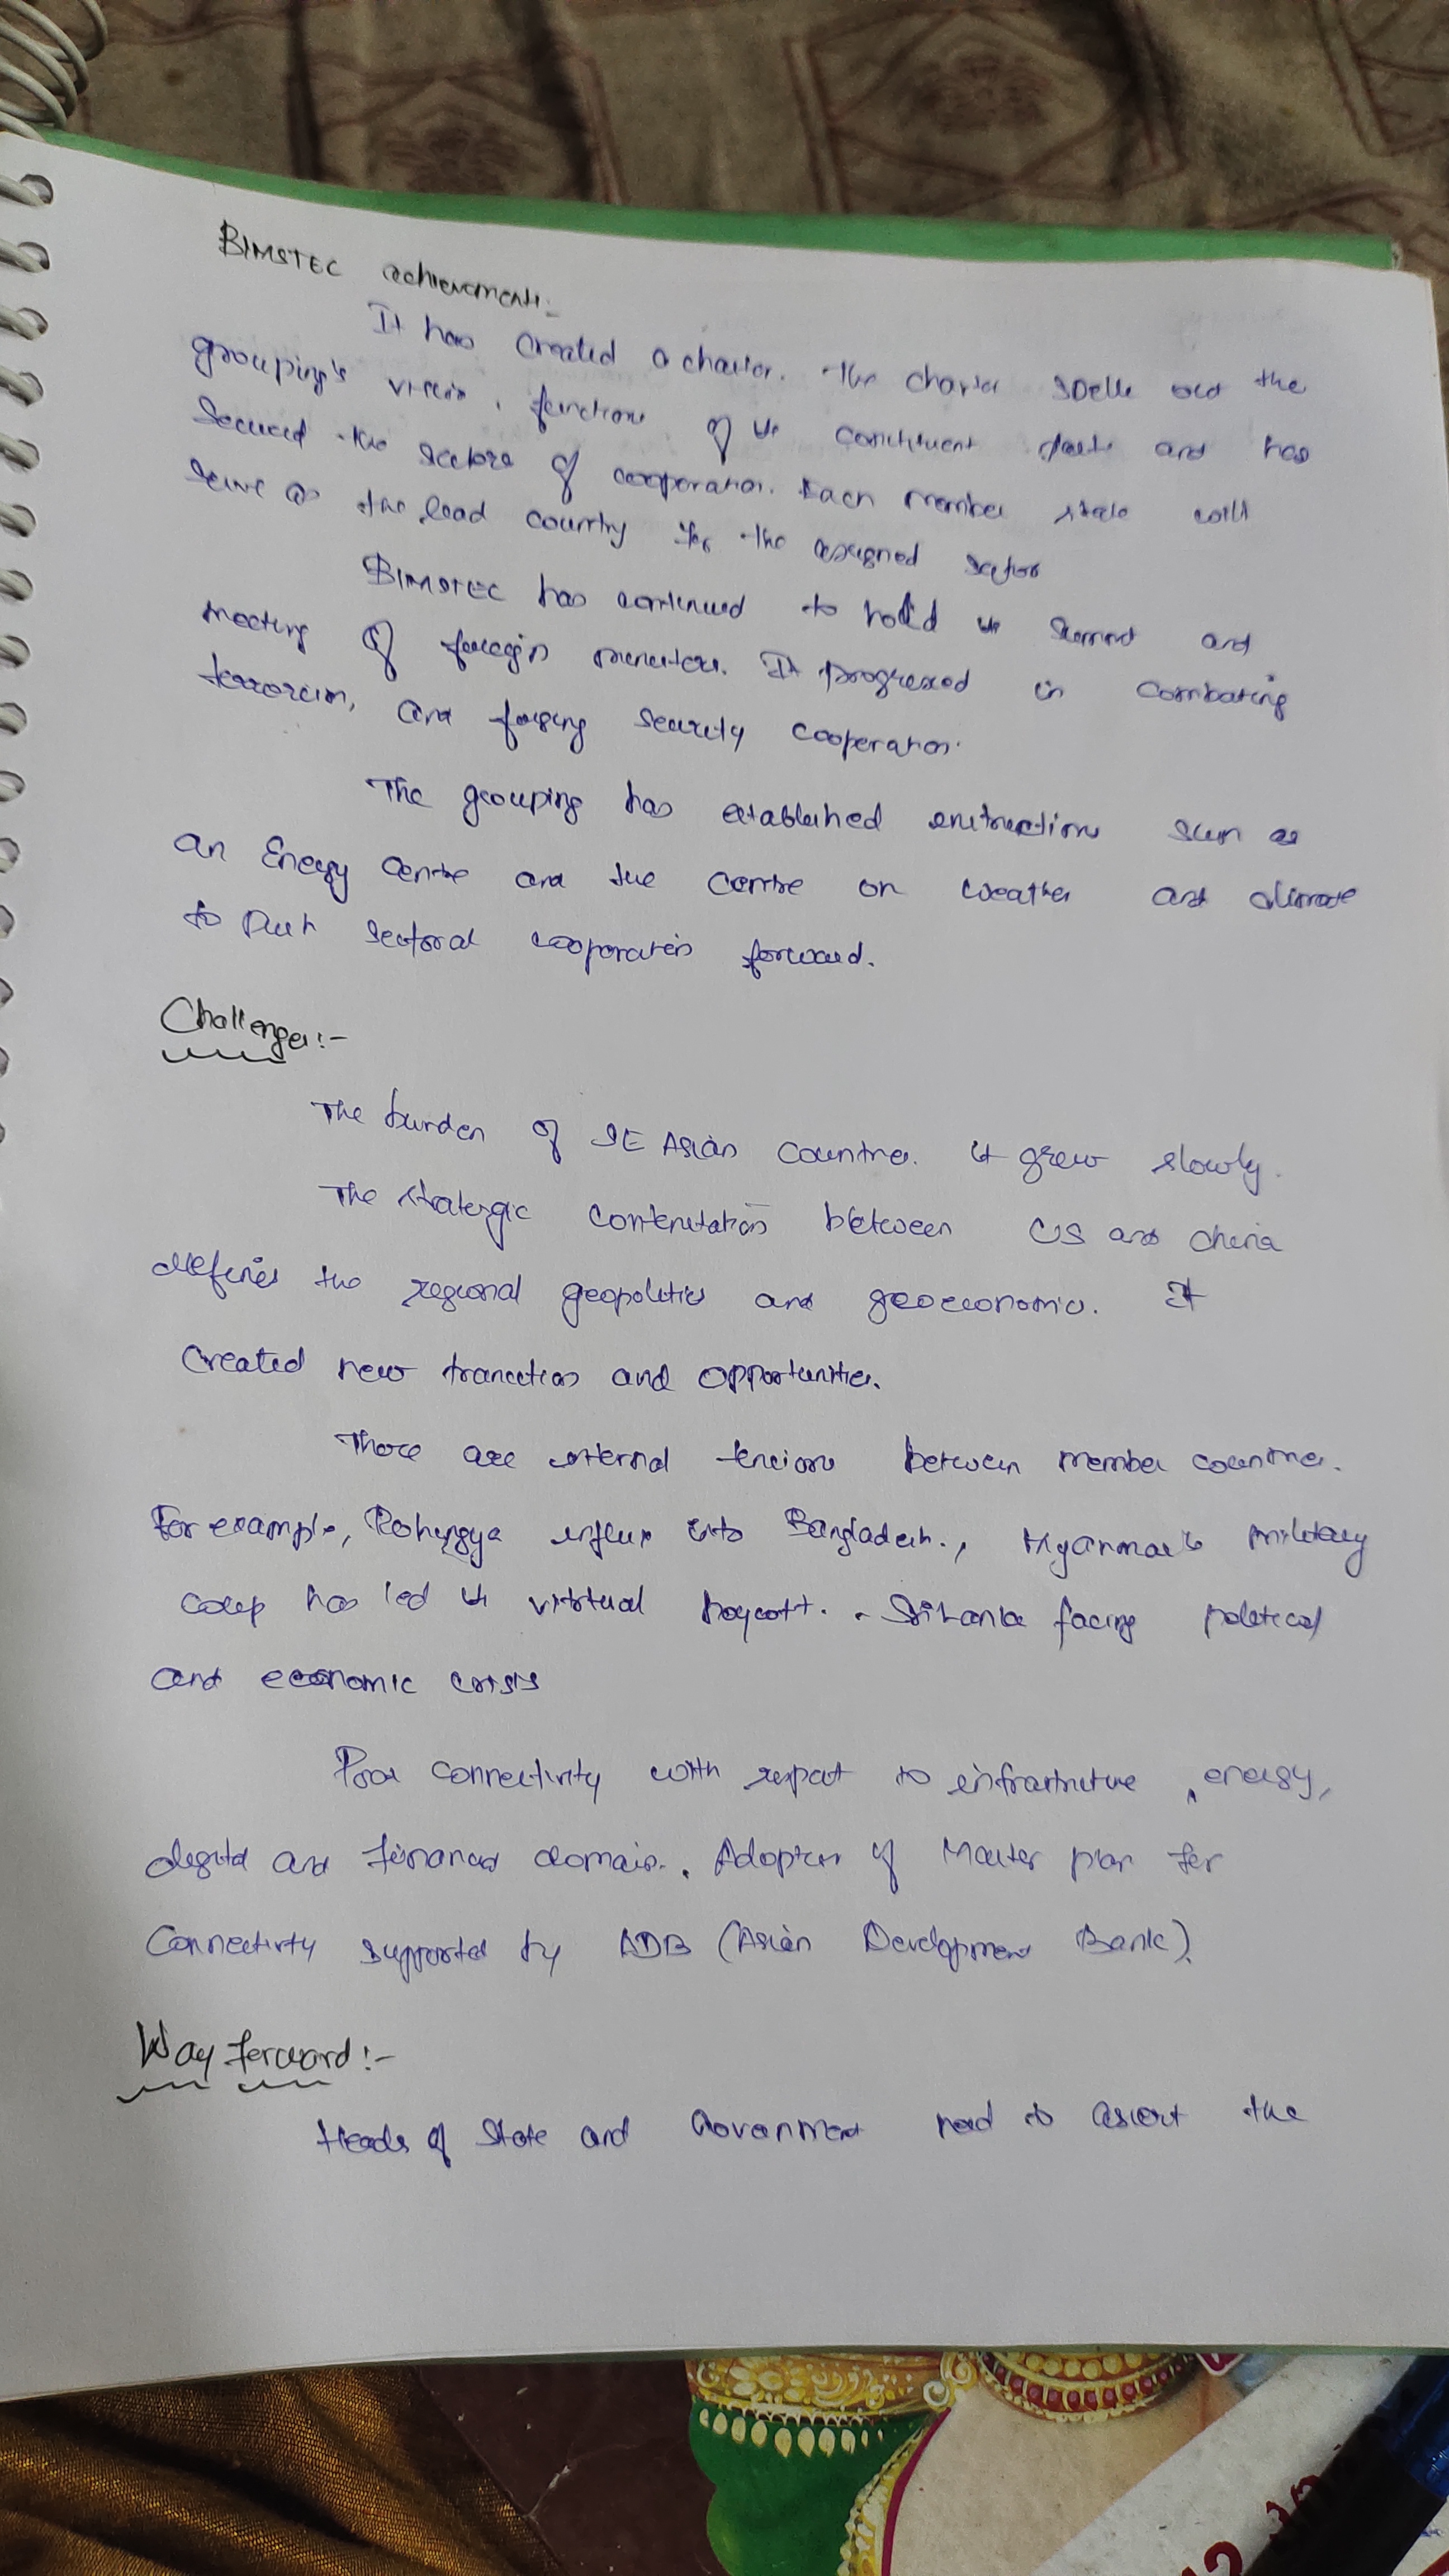 BIMSTEC achievements:-
It has created a charter. The charter spells out the
grouping's vision, functions of its constituent parts and has
secured the sectors of cooperation. Each member state will
serve as the lead country for the assigned sector
BIMSTEC has continued to hold its summit and
meeting of foreign ministers. It progressed in combating
terrorism, and forging security cooperation.
The grouping has established such as
an Energy centre and the centre on weather and climate
to push sectoral cooperation forward.
Challenges:-
The burden of SE Asian Countries. it grew slowly.
The between US and china
defines the regional geopolitics and geoeconomic. It
created new and opportunities.
There are internal tensions between member countries.
For example, Rohingya influx into Bangladesh., Myanmar's military
coup has led to virtual boycott. Sri Lanka facing political
and economic crisis
Poor connectivity with respect to , energy,
digital and financial domain. Adoption of Master plan for
Connectivity supported by ADB (Asian Development Bank).
Way forward:-
Heads of State and Government need to assert the
12